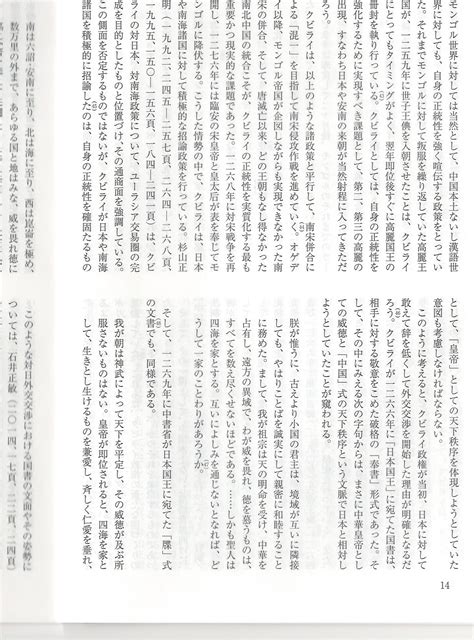 モンゴル世界に対しては当然として、中国本土ないし漢語世
界に対しても、自身の正統性を強く喧伝する政策をとってい
た。それまでモンゴルに対して叛服を繰り返していた高麗王
が、一二五九年に世子王倎を入朝させたことは、クビライ
にとってもタイミングがよく、翌年即位後すぐに高麗国王の
冊封を執り行っている。クビライとしては、自身の正統性を
強化するために実現すべき課題として、第二、第三の高麗の
出現、すなわち日本や安南の来朝が当然射程に入ってきただ
ろう。
クビライは、以上のような諸政策と平行して、南宋併合に
よる「混一」を目指して南宋侵攻作戦を進めていく。オゲデ
イ以降、モンゴル帝国が企図しながらも実現できなかった南
宋の併合、そして、唐滅亡以来、どの王朝もなし得なかった
南北中国の統合こそが、クビライの正統性を実質化する最も
重要かつ現実的な課題であった。一二六八年に対宋戦争を再
開し、一二七六年には臨安の宋皇帝と皇太后が表を奉じてモ
ンゴルに降伏する。こうした情勢の中で、クビライは、日本
や南海諸国に対して積極的な招諭政策を行っている。杉山正
明（一九九二、二〇一―二〇四頁、
一九九五、一五〇―一五六頁、一九四―二四一頁）は、クビ
ライの対日本、対南海政策について、ユーラシア交易圏の完
成を目的としたものと位置づけ、その通商面を強調している。
この側面を否定するものではないが、クビライが日本や南海
諸国を積極的に招諭したのは、自身の正統性を確固たるもの
南は六詔・安南に至り、北は海に至り、西は崑崙を極め、
数万里の外まで、あらゆる国と地はみな、威を畏れ徳に
14
として、「皇帝」としての天下秩序を体現しようとしていた
意図も考慮しなければならない。
このように考えると、クビライ政権が当初、日本に対して
敢えて辞を低くして外交交渉を開始した理由が明確となるだ
ろう。クビライが一二六六年に「日本国王」に宛てた国書は、
相手に対する敬意をこめた破格の「奉書」形式であった。そ
して、その中にみえる次の字句からは、まさに中華皇帝とし
ての威徳と「中国」式の天下秩序という文脈で日本と相対し
ようとしていたことが窺われる。
朕が惟うに、古えより小国の君主は、境域が互いに隣接
しても、やはりことばを誠実にして親密に和睦すること
に務めた。まして、我が祖宗は天の明命を受け、中華を
占有し、遠方の異域で、わが威を畏れ、徳を慕うものは、
すべてを数え尽くせないほどである。……しかも聖人は
四海を家とする。互いによしみを通じないとなれば、ど
うして一家のことわりがあろうか。
そして、一二六九年に中書省が日本国王に宛てた「牒」式
の文書でも、同様である。
我が朝は神武によって天下を平定し、その威徳が及ぶ所
服さないものはない。皇帝が即位されると、四海を家と
して、生きとし生けるものを兼愛し、斉しく仁愛を垂れ、
このような対日外交交渉における国書の文面やその姿勢に
ついては、石井正敏（二〇一四、七頁、二二頁、二四頁）